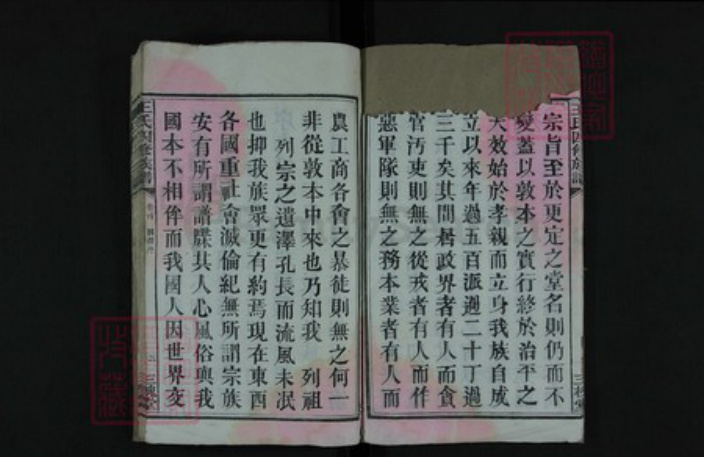 宗旨至於更定之堂名則仍而不
變蓋以敦本之實行終於治平之
大效始於孝親而立身我族自成
立以來年過五百派過二十丁過
三千矣其間居政界者有人而貪
官汚吏則無之從戎者有人而作
惡軍隊則無之務本業者有人而
農工商各會之暴徒則無之何一
非從敦本中來也乃知我 列祖
列宗之遺澤孔長而流風未泯
也抑我族眾更有約焉現在東西
各國重社會滅倫紀無所謂宗族
安有所謂譜牒其人心風俗與我
國本不相侔而我國人因世界交
王氏四修族譜
三槐堂